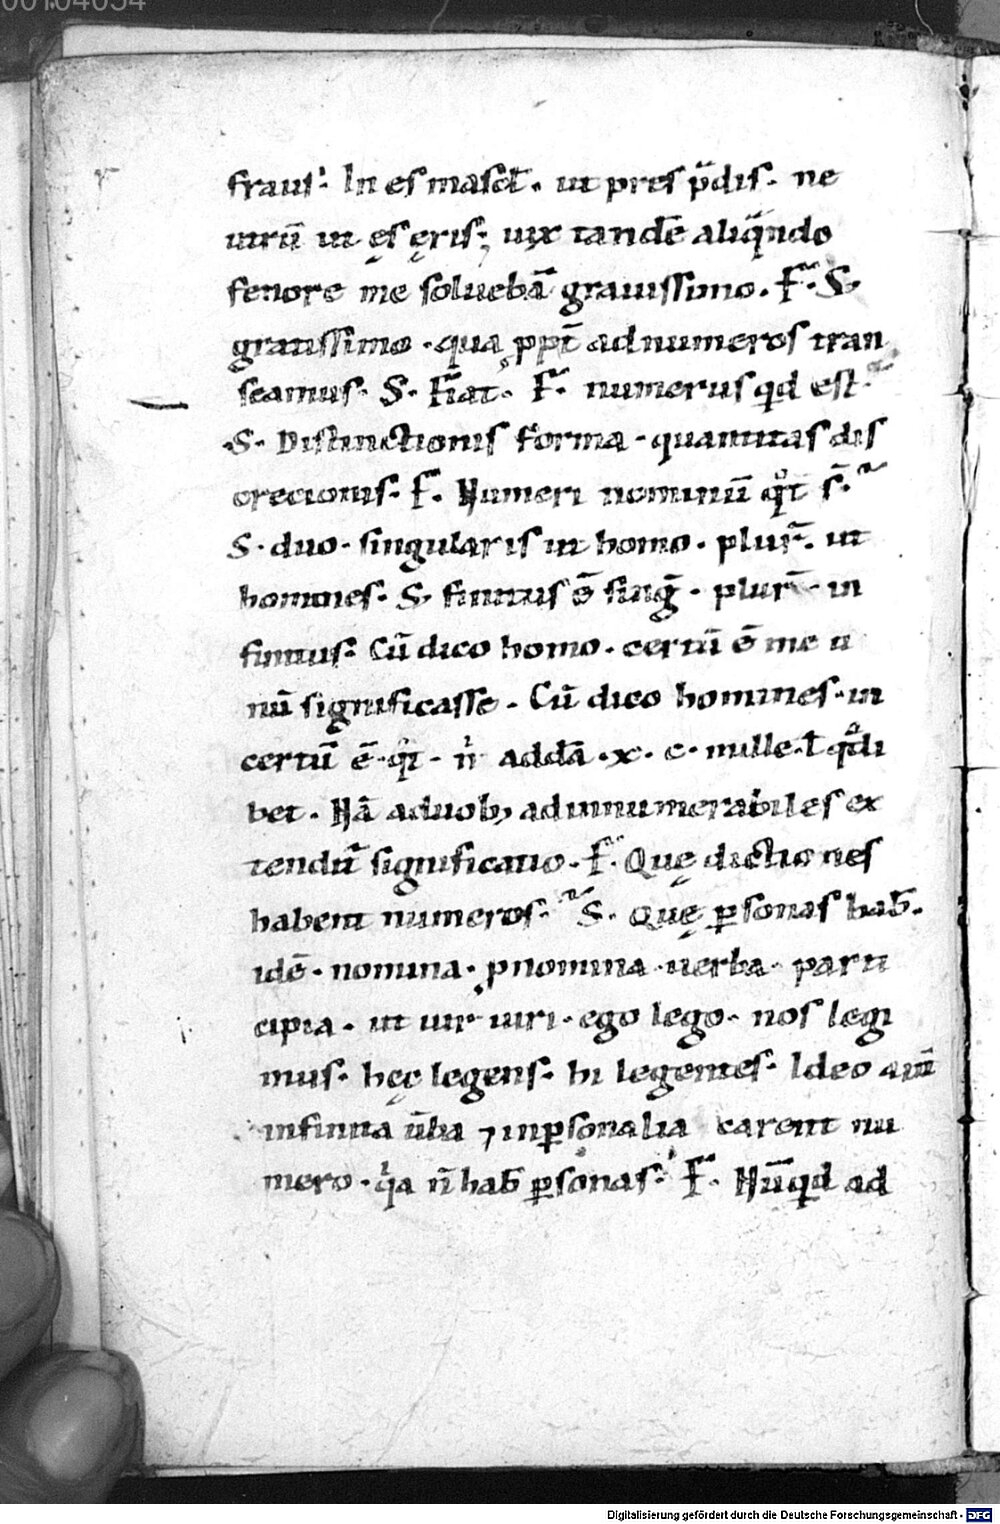 00104054
fraus·' In es mascł. ut pres p̈dis. ne
utrū ut ęs ęris; uix tandē aliq̈ndo
fenore me soluebā grauissimo. F̄. S
gratissimo. qua ꝓpt̄ ad numeros tran
seamus. S. Fiat. F̄. numerus qd est.
.S. Distinctionis forma. quantitas dis
crecionis. F. Numeri nominū qͦt s̄.
S. duo. singularis ut homo. plur̄. ut
homines. S. finitus ē sinḡ. plur̄. in
finitus. Cū dico homo. certū ē me u
nū significasse. Cū dico homines. in
certū ē. qͥ. n̄ addā .x. c. mille. ł qͦdli
bet. Nā a duob; ad innumerabiles ex
tendit̄ significatio. F. Quę dictiones
habent numeros. S. Quę ꝑsonas hab̄.
idē. nomina. ꝓnomina. uerba. parti
cipia. ut uir uiri. ego lego. nos legi
mus. hęc legens. hi legentes. Ideo autē
infinita ūba ⁊ inꝑsonalia carent nu
mero. qͥa n̄ hab̄ ꝑsonas. F. Nūqd ad
Digitalisierung gefördert durch die Deutsche Forschungsgemeinschaft - DFG